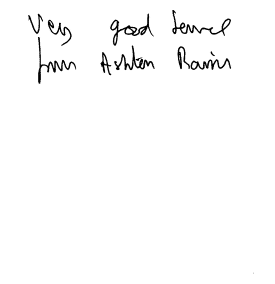 Very good service
from Ashten Rains